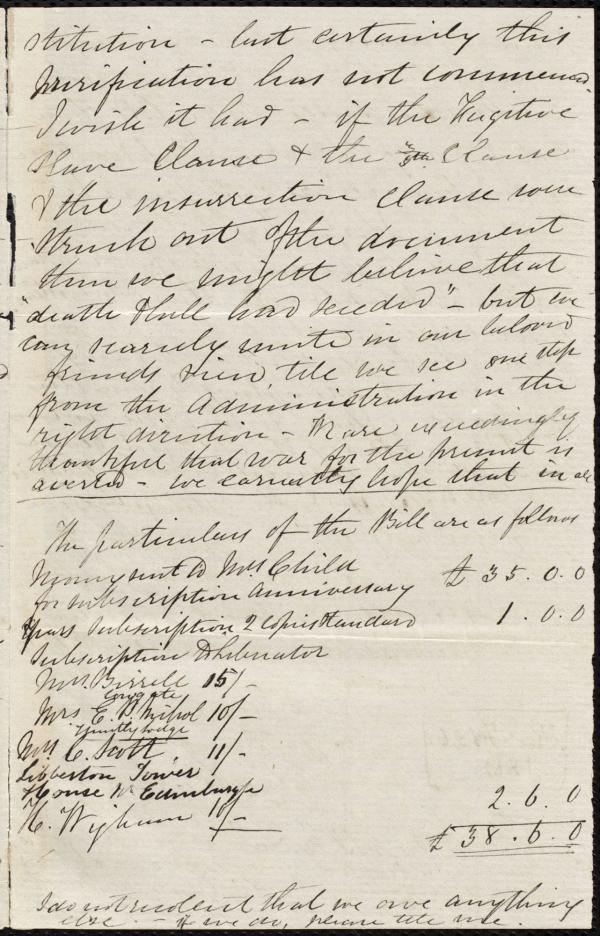 stitution - but certainly this
purification has not commenced.
I wish it had - if the Fugitive
Slave Clause & the 3/5ths Clause
& the insurrection Clause were
struck out of the document
then we might believe that
"death & hell had seceded" - but we
can scarcely unite in our beloved
friends view, till we see one step
from the Administration in the
right direction - We are exceedingly
thankful that war for the present is
averted - we earnestly hope that in all
The particulars of the Bill are as follows
Money sent to Mrs Child
for subscription anniversary £35.0.0
Years Subscription 2 copies Standard 1.0.0
Subscription to Liberator
Mrs. Birrell 15/-
Mrs E. P. Nichol 10/-
Huntly Lodge
Mrs C. Scott 11/-
Libberton Tower
House Nr Edinburgh
H. Wigham 10/- 2.6.0
£38.6.0
I do not recollect that we owe anything
else. - if we do, please tell me.